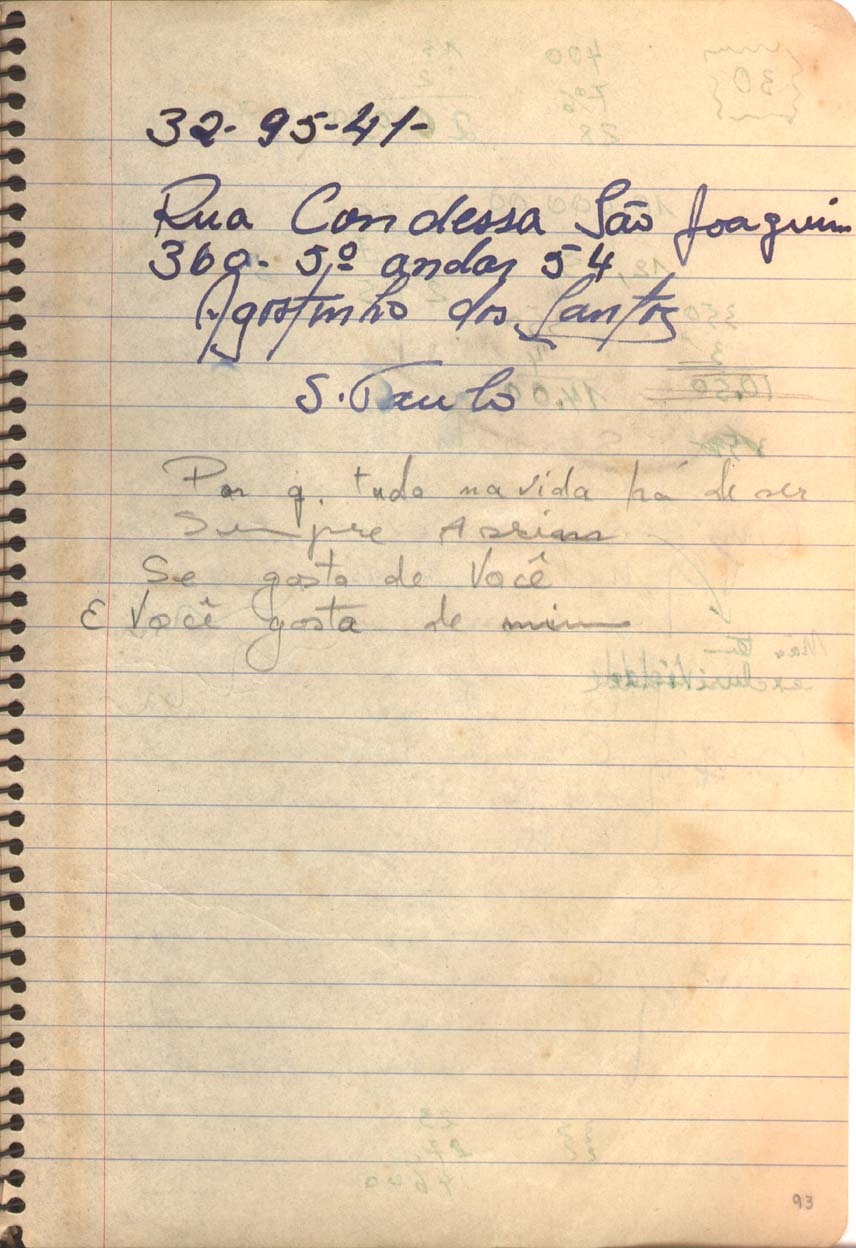 32-95-41-
Rua Condessa São Joaquim
360- 5º andar 54
Agostinho dos Santos
S. Paulo
Por q. tudo na vida há de ser
Sempre Assim
Se gosto de Você
E Você gosta de mim
93